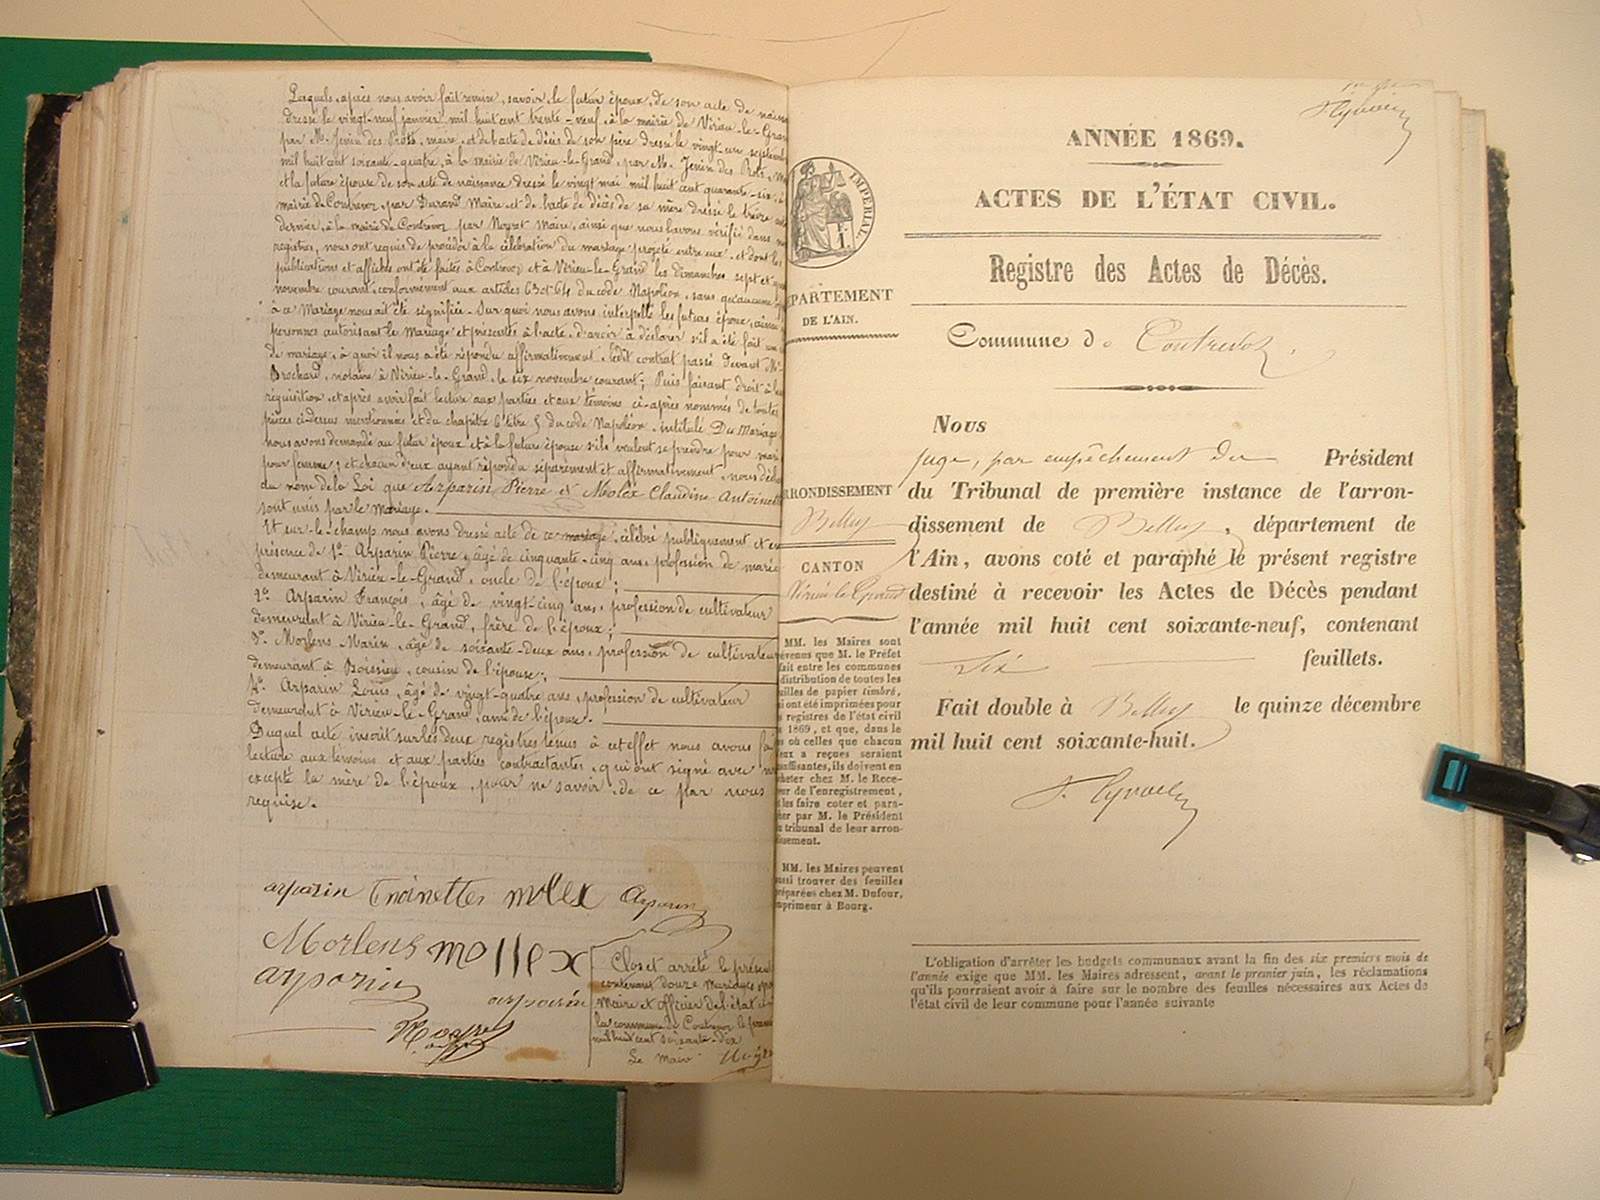 Lesquels, après nous avoir fait remise, savoir, le futur époux, de son acte de naiss
dressé le vingt-neuf janvier mil huit cent trente-neuf, à la mairie de Virieu-le-Gran
par Mr Jenin des Prots, maire, et de l'acte de décès de son père dressé le vingt-un septemb
mil huit cent soixante-quatre, à la mairie de Virieu-le-Grand, par Mr. Jenin des Prots, M
et la future épouse de son acte de naissance dressé le vingt mai mil huit cent quarante-six, à
mairie de Contrevoz par Durand Maire et de l'acte de décès de sa mère dressé le treize
dernier, à la mairie de Contrevoz par Noyret Maire, ainsi que nous l'avons vérifié dans no
registres, nous ont requis de procéder à la célébration du mariage projeté entre eux, et dont les
publications et affiches ont été faites à Contrevoz et à Virieu-le-Grand les dimanches sept et
novembre courant, conformément aux articles 63 et 64 du code Napoléon, sans qu'aucune
à ce Mariage nous ait été signifiée. Sur quoi nous avons interpellé les futurs époux, ainsi
personnes autorisant le Mariage et présentes à l'acte, d'avoir à déclarer s'il a été fait un
de mariage, à quoi il nous a été répondu affirmativement, ledit contrat passé devant Me
Brochard, notaire à Virieu-le-Grand, le six novembre courant; Puis faisant droit à leur
réquisition, et après avoir fait lecture aux parties et aux témoins ci-après nommés de toutes
pièces ci-dessus mentionnées et du chapitre 6 titre 5 du code Napoléon, intitulé Du Mariage
nous avons demandé au futur époux et à la future épouse s'ils veulent se prendre pour mari
pour femme; et chacun d'eux ayant répondu séparément et affirmativement, nous décl
au nom de la Loi que Arparin Pierre et Molex Claudine Antoinet
sont unis par le Mariage.
Et sur-le-champ nous avons dressé acte de ce mariage, célébré publiquement et en
présence de 1º. Arparin Pierre, âgé de cinquante-cinq ans, profession de
demeurant à Virieu-le-Grand, oncle de l'époux;
2º. Arparin François, âgé de vingt-cinq ans, profession de cultivateur
demeurant à Virieu-le-Grand, frère de l'époux;
3º. Morlens Marin, âgé de soixante-deux ans, profession de cultivateur
demeurant à Boissieu, cousin de l'épouse;
4º. Arparin Louis, âgé de vingt-quatre ans, profession de cultivateur
demeurant à Virieu-le-Grand, ami de l'épouse.
Duquel acte inscrit sur les deux registres tenus à cet effet nous avons fai
lecture aux témoins et aux parties contractantes, qui ont signé avec n
excepté la mère de l'époux, pour ne savoir, de ce par nous
requise.
arparin Tnoinette molex Arparin
Morlens mollex
arparin
arparin
Clos et arrêté le présent
contenant douze mariages
Maire et officier de l'état ci
la commune de Contrevoz le
mil huit cent soixante-dix
Le Maire
ANNÉE 1869.
ACTES DE L'ÉTAT CIVIL.
Registre des Actes de Décès.
IMPÉRIAL.
PARTEMENT
DE L'AIN.
Commune de Contrevoz.
RRONDISSEMENT
Belley
CANTON
Virieu le Grand
MM. les Maires sont
évenus que M. le Préfet
fait entre les communes
distribution de toutes les
uilles de papier timbré,
i ont été imprimées pour
s registres de l'état civil
1869, et que, dans le
s où celles que chacun
eux a reçues seraient
suffisantes, ils doivent en
cheter chez M. le Rece-
eur de l'enregistrement,
les faire coter et para-
her par M. le Président
u tribunal de leur arron-
issement.
MM. les Maires peuvent
ussi trouver des feuilles
réparées chez M. Dufour,
mprimeur à Bourg.
Nous
juge, par empêchement du Président
du Tribunal de première instance de l'arron-
dissement de Belley, département de
l'Ain, avons coté et paraphé le présent registre
destiné à recevoir les Actes de Décès pendant
l'année mil huit cent soixante-neuf, contenant
Six feuillets.
Fait double à Belley le quinze décembre
mil huit cent soixante-huit.
L'obligation d'arrêter les budgets communaux avant la fin des six premiers mois de
l'année exige que MM. les Maires adressent, avant le premier juin, les réclamations
qu'ils pourraient avoir à faire sur le nombre des feuilles nécessaires aux Actes de
l'état civil de leur commune pour l'année suivante